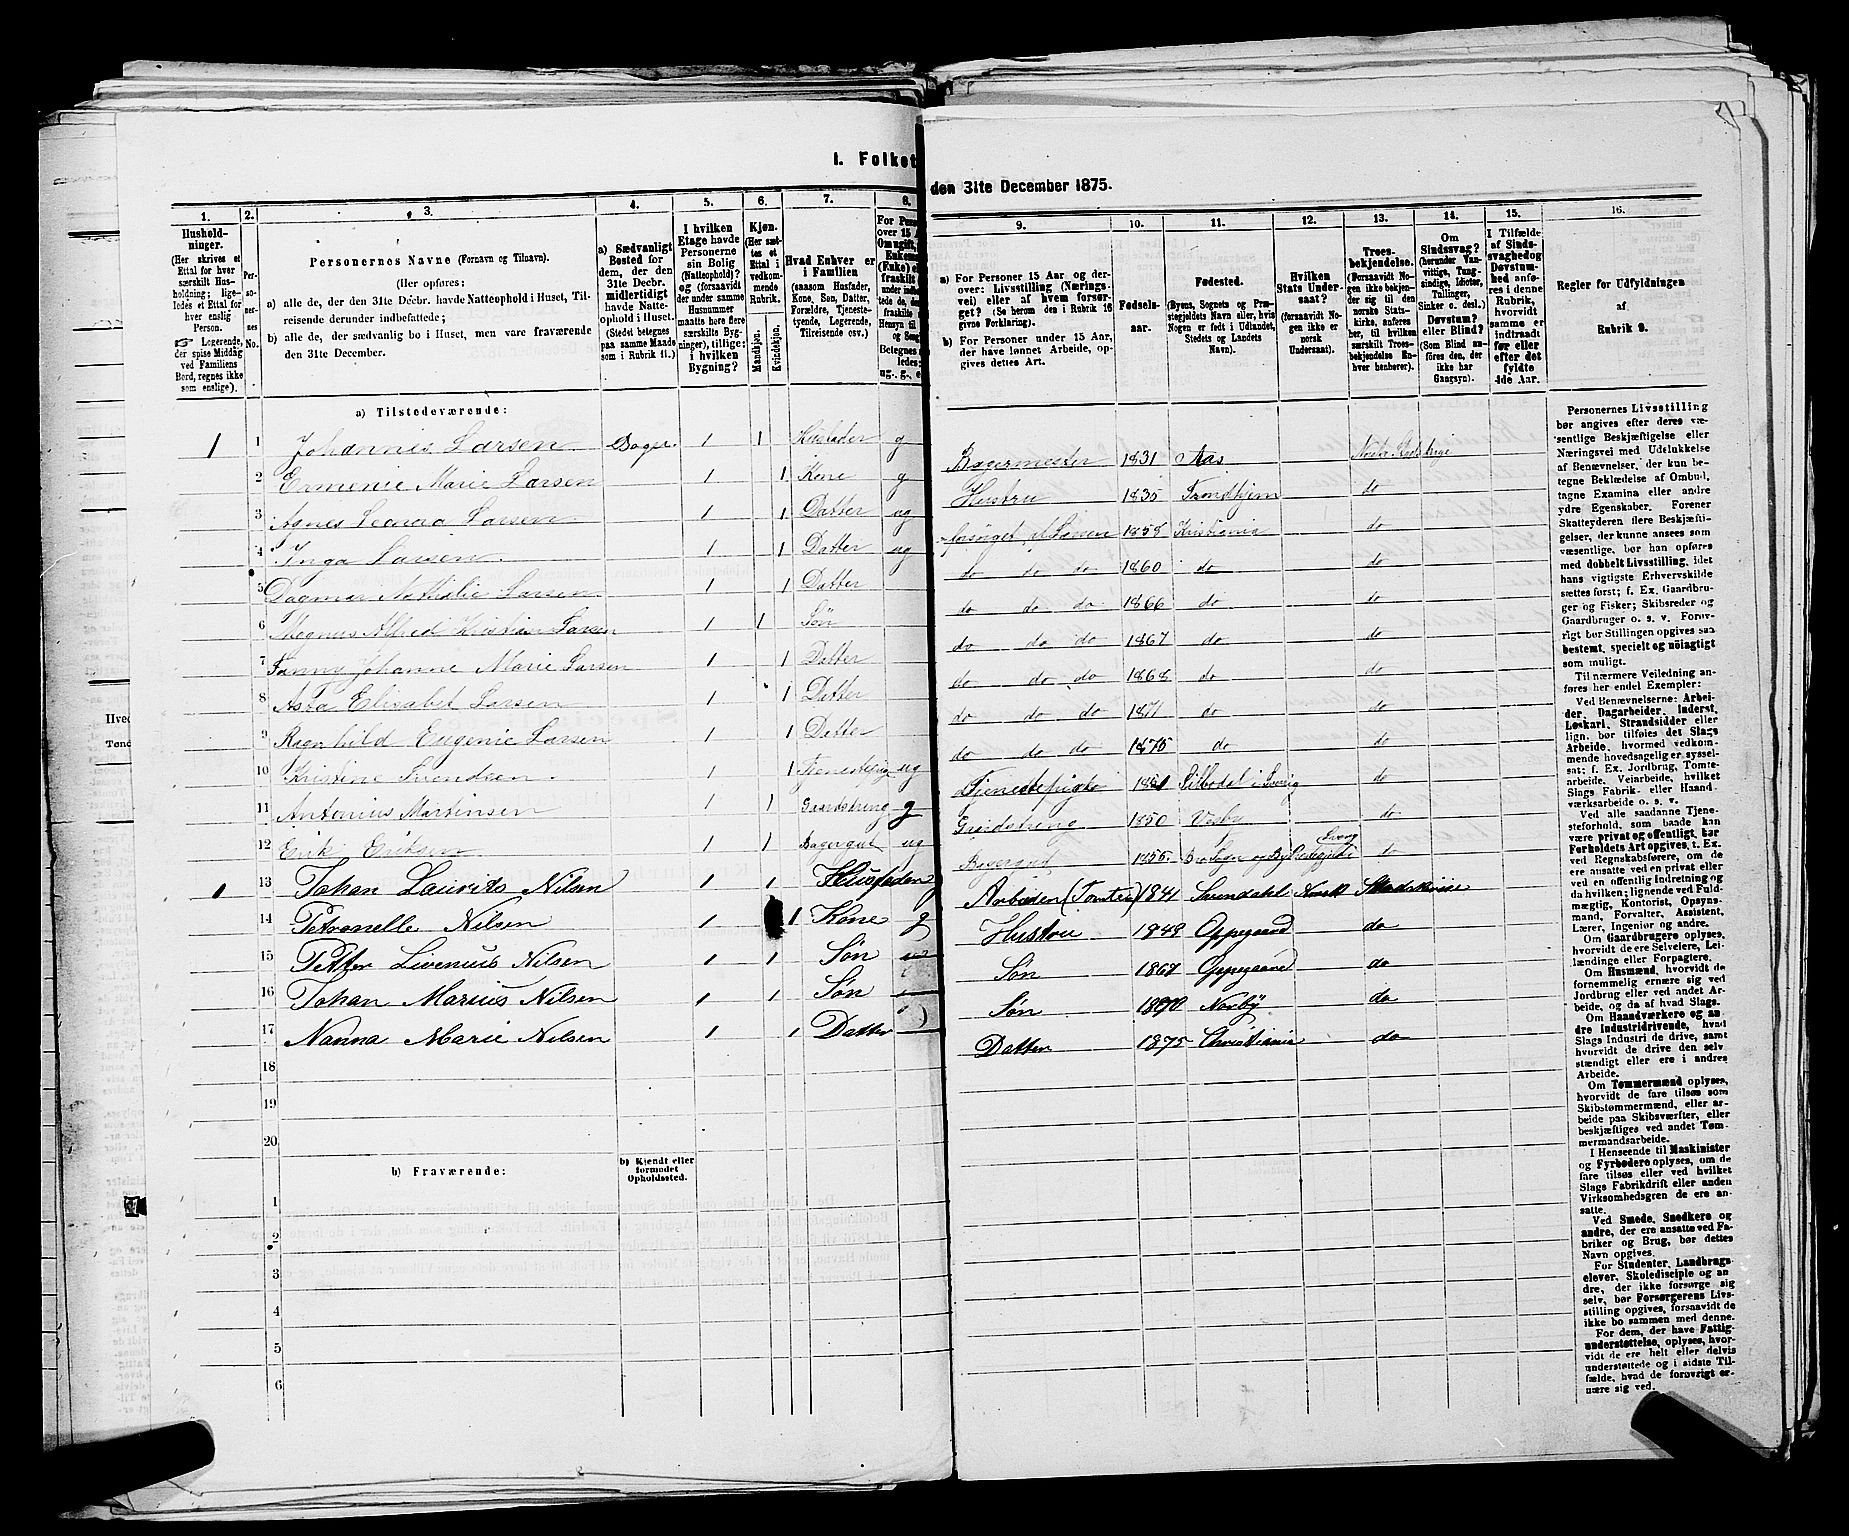 I. Folket
den 31te December 1875.
1. 2. 3. 4. 5. 6. 7. 8. 9. 10. 11. 12. 13. 14. 15. 16.
Husholdninger. (Her skrives et Ettal for hver særskilt Husholdning; ligeledes et Ettal for hver enslig Person. ☞ Logerende, der spise Middag ved Familiens Bord, regnes ikke som enslige).
Personernes No.
Personernes Navne (Fornavn og Tilnavn).
(Her opføres:
a) alle de, der den 31te Decbr. havde Natteophold i Huset, Tilreisende derunder indbefattede;
b) alle de, der sædvanlig bo i Huset, men vare fraværende den 31te December.
a) Sædvanligt Bosted for dem, der den 31te Decbr. midlertidigt havde Natteophold i Huset. (Stedet betegnes paa samme Maade som i Rubrik 11.)
I hvilken Etage havde Personerne sin Bolig (Natteophold)? og (forsaavidt der under samme Husnummer maatte høre flere særskilte Bygninger), tillige: i hvilken Bygning?
Kjøn. (Her sættes et Ettal i vedkommende Rubrik. Mandkjøn. Kvindekjøn.
Hvad Enhver er i Familien (saasom Husfader, Kone, Søn, Datter, Forældre, Tjenestetyende, Logerende, Tilreisende osv.)
a) For Personer 15 Aar og derover: Livsstilling (Næringsvei) eller af hvem forsørget. (Se herom den i Rubrik 16 givne Forklaring).
b) For Personer under 15 Aar, der have lønnet Arbeide, opgives dettes Art.
Fødselsaar.
Fødested. (Byens, Sognets og Præstegjeldets Navn eller, hvis Nogen er født i Udlandet, Stedets og Landets Navn).
Hvilken Stats Undersaat? (forsaavidt Nogen ikke er norsk Undersaat).
Troesbekjendelse. (Forsaavidt Nogen ikke bekjender sig til den norske Statskirke, anføres her, til hvilken særskilt Troesbekjendelse Enhver henhører).
Om Sindssvag? (herunder Vanvittige, Tungsindige, Idioter, Tullinger, Sinker o. desl.) Døvstum? eller Blind? (Som Blind anføres den, der ikke har Gangsyn).
I Tilfælde af Sindssvaghed og Døvstumhed anføres i denne Rubrik, hvorvidt samme er indtraadt før eller efter det fyldte 4de Aar.
Regler for Udfyldningen af Rubrik 9.
a) Tilstedeværende:
1 1 Johannes Larsen Bager 1 1 Husfader g Bagermester 1831 Aas
2 Ermenie Marie Larsen 1 1 Kone g Hustru 1835 Trondhjem do
3 Agnes Leonora Larsen 1 1 Datter ug forsørget af Larsen 1858 Kristiania do
4 Inga Larsen 1 1 Datter ug do do do 1860 do do
5 Dagmar Nathalie Larsen 1 1 Datter do do do 1866 do do
6 Magnus Alfred Kristian Larsen 1 1 Søn do do do 1867 do do
7 Fanny Johanne Marie Larsen 1 1 Datter do do do 1868 do do
8 Asta Elisabet Larsen 1 1 Datter do do do 1871 do do
9 Ragnhild Eugenie Larsen 1 1 Datter do do do 1875 do do
10 Kristine Svendsen 1 1 Tjenestepige ug Tjenestepige do
11 Antonius Martinsen 1 1 Gaardsdreng g Gaardsdreng 1850 Vesby do
12 Erik Eriksen 1 1 Bagergut ug Bagergut do
1 13 Johan Laurits Nilsen 1 1 Husfader g Arbeider (Tomten) 1841 Svendahl Norsk Statskirke
14 Petronelle Nilsen 1 1 Kone g Hustru 1849 Oppegaard do
15 Petter Livenius Nilsen 1 1 Søn Søn 1867 Oppegaard do
16 Johan Marius Nilsen 1 1 Søn Søn 1870 Norby do
17 Nanna Marie Nilsen 1 1 Datter Datter 1875 Christiania do
18
19
20
b) Fraværende:
b) Kjendt eller formodet Opholdssted.
1
2
3
4
5
6
Personernes Livsstilling bør angives efter deres væsentlige Beskjæftigelse eller Næringsvei med Udelukkelse af Benævnelser, der kun betegne Beklædelse af Ombud, tagne Examina eller andre ydre Egenskaber. Forener Skatteyderen flere Beskjæftigelser, der kunne ansees som væsentlige, bør han opføres med dobbelt Livsstilling, idet hans vigtigste Erhvervskilde sættes først; f. Ex. Gaardbruger og Fisker; Skibsreder og Gaardbruger o. s. v. Forøvrigt bør Stillingen opgives saa bestemt, specielt og nøiagtigt som muligt.
Til nærmere Veiledning anføres her endel Exempler:
Ved Benævnelserne: Arbeider, Dagarbeider, Inderst, Løskarl, Strandsidder eller lign. bør tilføies det Slags Arbeide, hvormed vedkommende hovedsagelig er sysselsat; f. Ex. Jordbrug, Tomtearbeide, Veiarbeide, hvilket Slags Fabrik- eller Haandværksarbeide o. s. v.
Ved alle saadanne Tjenesteforhold, som baade kan være privat og offentligt, bør Forholdets Art opgives, t. Ex. ved Regnskabsførere, om de ere ansatte ved en privat eller ved en offentlig Indretning og da hvilken; lignende ved Fuldmægtig, Kontorist, Opsynsmand, Forvalter, Assistent, Lærer, Ingeniør og andre.
Om Gaardbrugere oplyses, hvorvidt de ere Selveiere, Leilændinge eller Forpagtere.
Om Husmænd, hvorvidt de fornemmelig ernære sig ved Jordbrug eller ved andet Arbeide, og da af hvad Slags.
Om Haandværkere og andre Industridrivende, hvad Slags Industri de drive, samt hvorvidt de drive den selvstændigt eller ere i andres Arbeide.
Om Tømmermænd oplyses, hvorvidt de fare tilsøs som Skibstømmermænd, eller arbeide paa Skibsværfter, eller beskjæftiges ved andet Tømmermandsarbeide.
I Henseende til Maskinister og Fyrbødere oplyses, om de fare tilsøs eller ved hvilket Slags Fabrikdrift eller anden Virksomhedsgren de ere ansatte.
Ved Smede, Snedkere og andre, der ere ansatte ved Fabriker og Brug, bør dettes Navn opgives.
For Studenter, Landbrugselever, Skoledisciple og andre, der ikke forsørge sig selv, bør Forsørgerens Livsstilling opgives, forsaavidt de ikke bo sammen med denne.
For dem, der have Fattigunderstøttelse, oplyses, hvorvidt de ere helt eller delvis understøttede og i sidste Tilfælde, hvad de forøvrigt ernære sig ved.